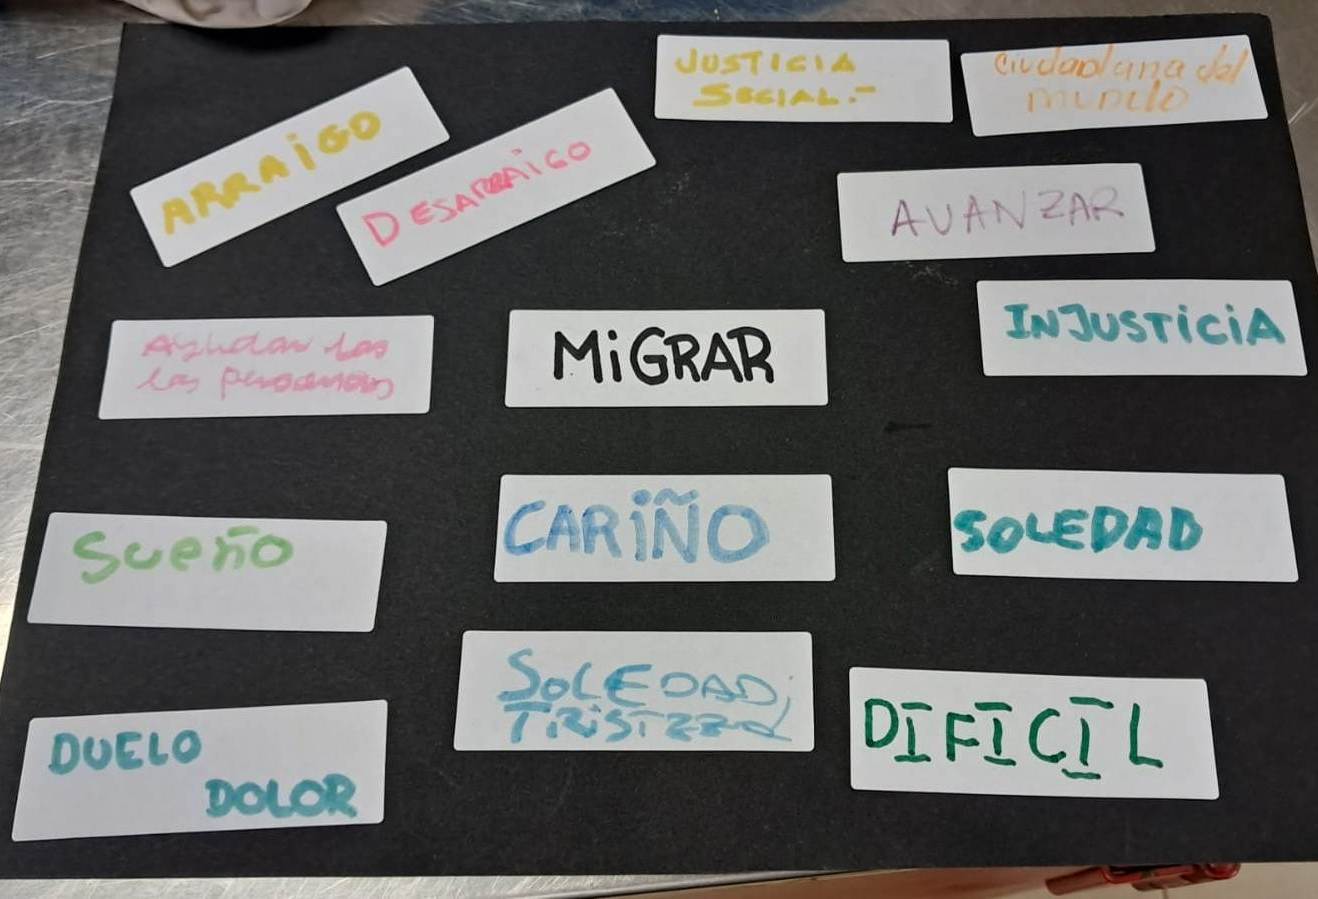 JUSTICIA
SOCIAL.-
Ciudadana del
mundo
ARRAiGO
DESARRAiGO
AVANZAR
Ayudar las
las personas
MiGRAR
INJUSTiCiA
Sueño
CARiÑO
SOLEDAD
DUELO
DOLOR
SOLEDAD,
TRiSTEZA
DIFICIL